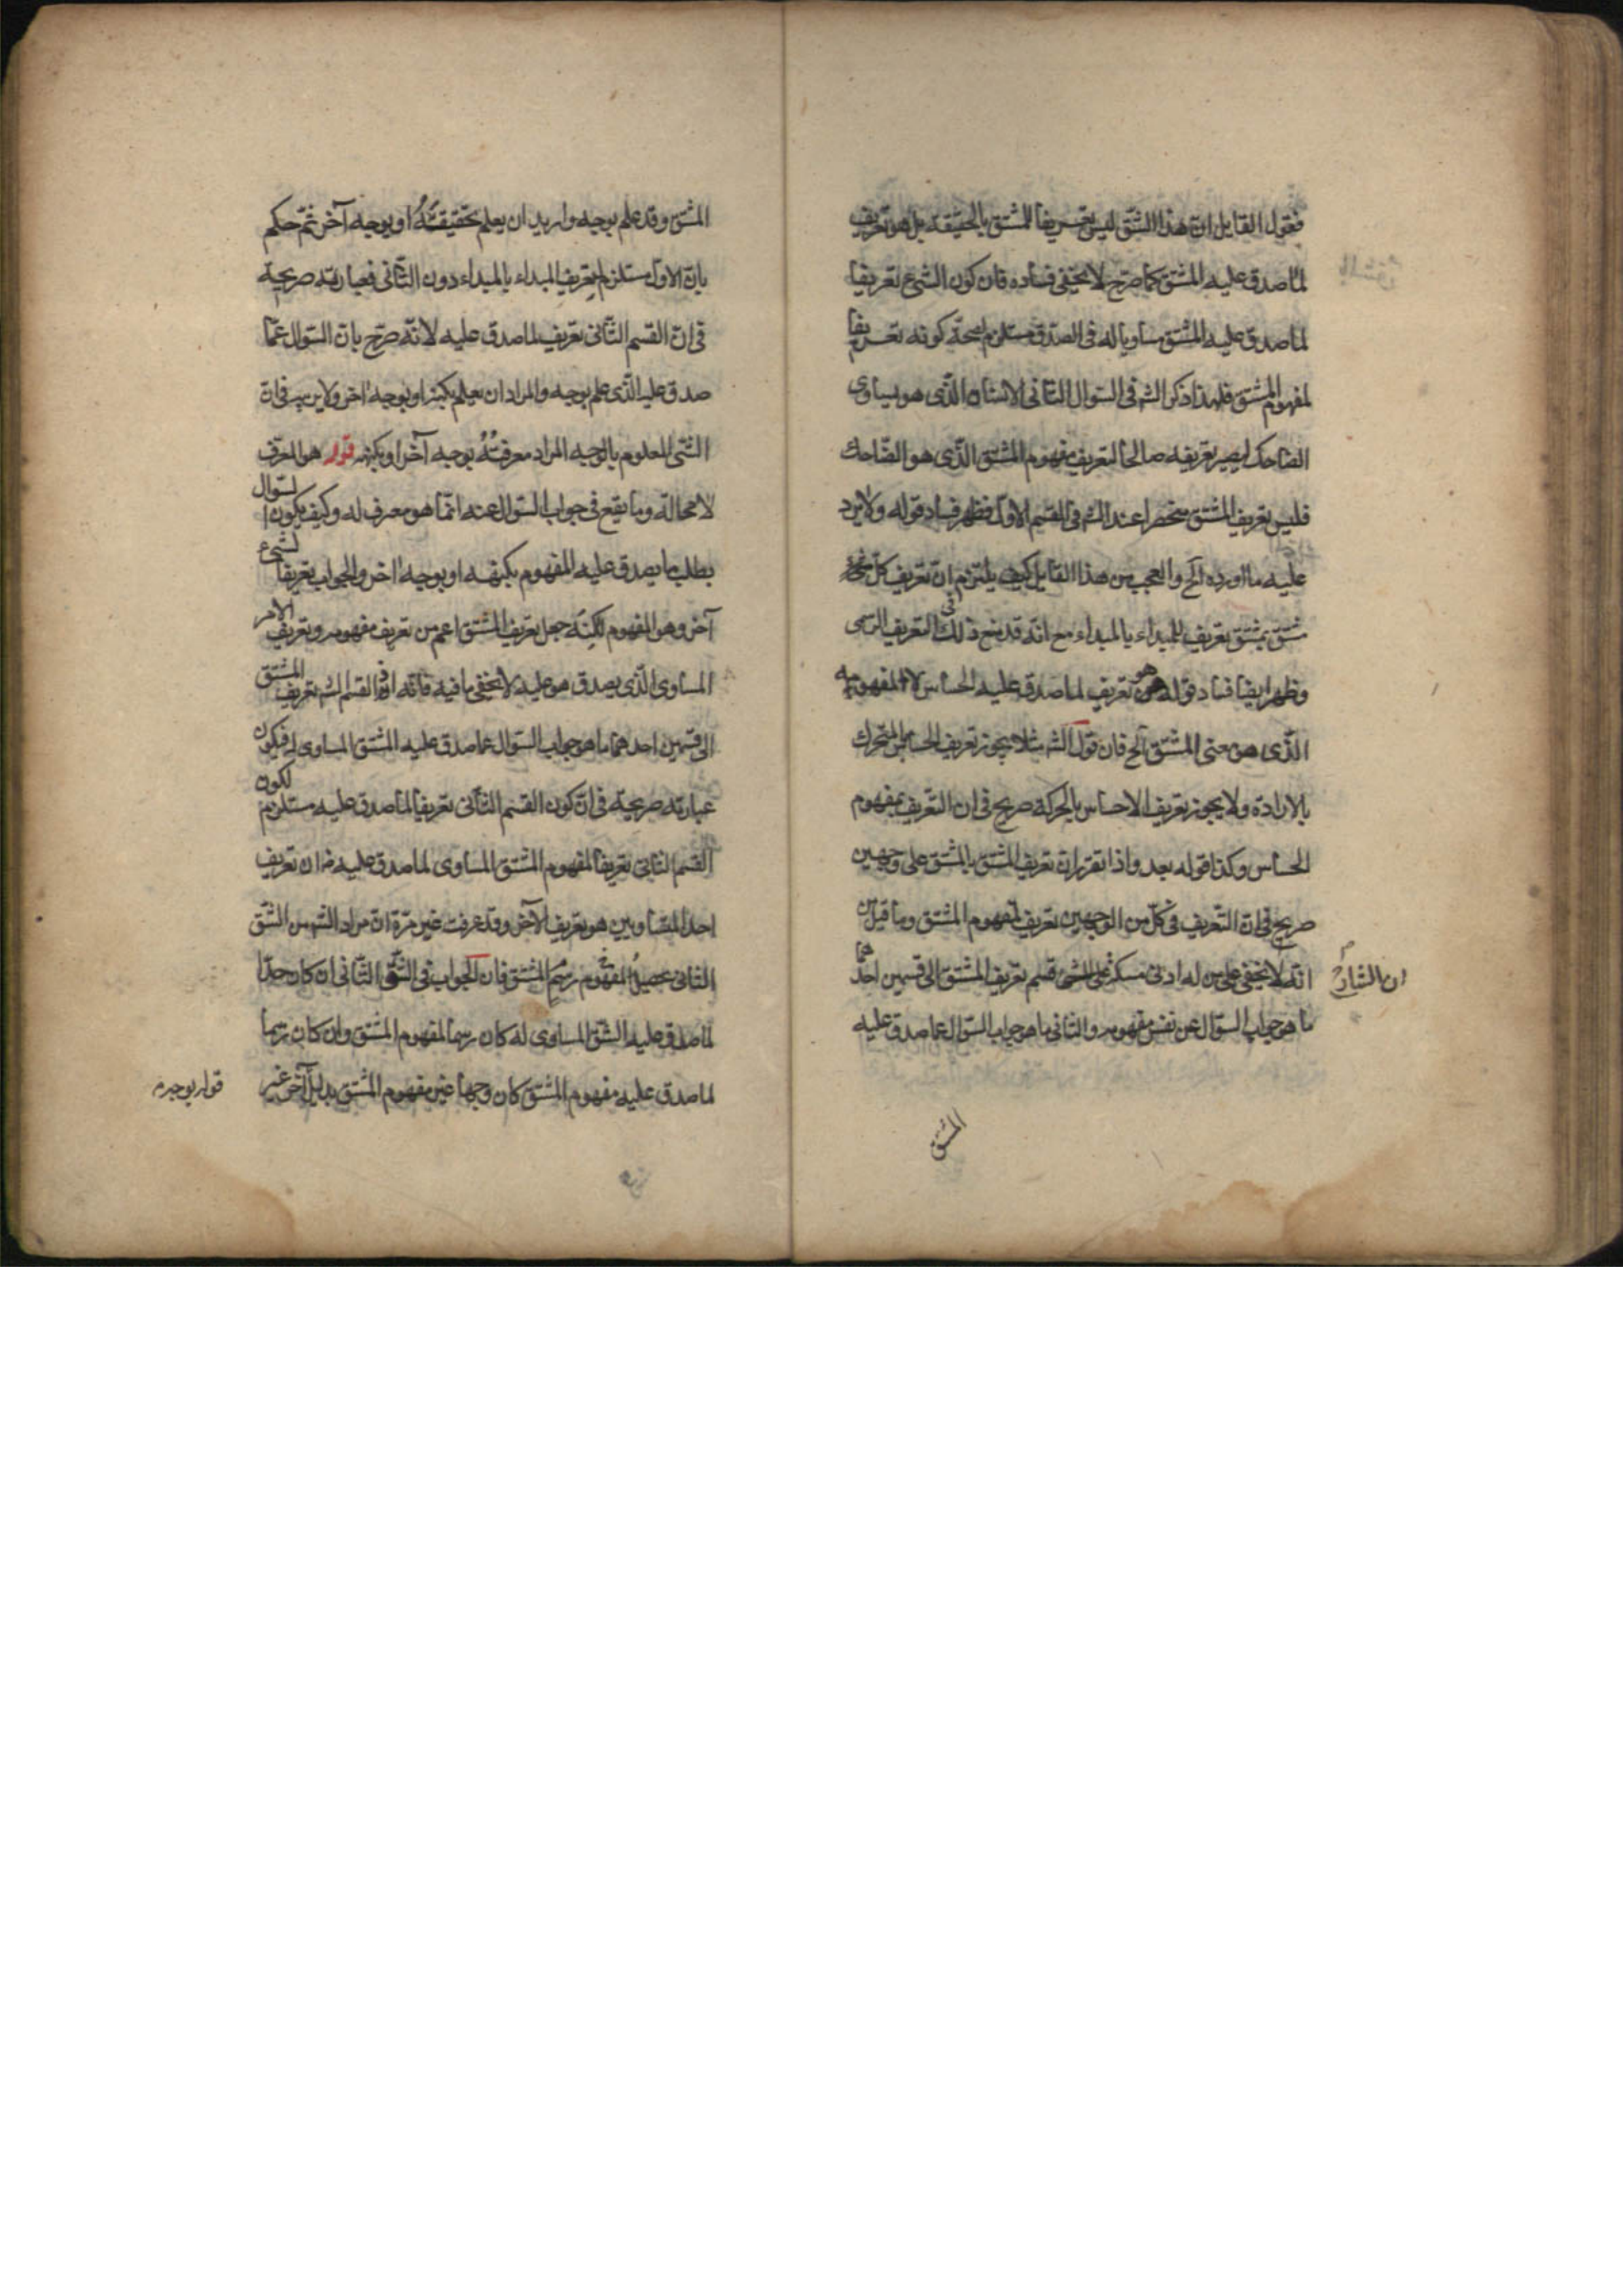 فقول القايل ان هذا الشق ليس تعريفا للمشتق بالحقيقة بل هو تعريف
لما صدق عليه المشتق كما صرح لا يخفى فساده فان كون الشئ تعريفا
لما صدق عليه المشتق مساويا له فى الصدق مستلزم لصحة كونه تعريفا
لمفهوم المشتق فلهذا ذكر الشه فى السوال الثانى الانسان الذى هو يساوى
الضاحك ليصير تعريفه صالحا لتعريف مفهوم المشتق الذى هو الضاحك
فليس تعريف المشتق منحصرا عند الشه فى القسم الاول فظهر فساد قوله ولا يرد
عليه ما اورده الخ والعجب من هذا القايل كيف يلتزم ان تعريف كل
مشتق بمشتق تعريف للمبداء بالمبداء مع انه قد منع ذلك فى التعريف الرسمى
وظهر ايضا فساد قوله هو تعريف لما صدق عليه الحساس لا لمفهومه
الذى هو معنى المشتق الخ فان قول الشه مثلا يجوز تعريف الحساس بالمتحرك
بالارادة ولا يجوز تعريف الاحساس بالحركة صريح فى ان التعريف بمفهوم
الحساس وكذا قوله بعد واذا تقرر ان تعريف المشتق بالمشتق على وجهين
صريح فى ان التعريف فى كل من الوجهين تعريف لمفهوم المشتق وما قيل من
انه لا يخفى على من له ادنى مسكة ان الشارح قسم تعريف المشتق الى قسمين احدهما
ما هو جواب السؤال عن نفس مفهومه والثانى ما هو جواب السؤال عما صدق عليه
المشتق
المشتق وقد علم بوجه واريد ان يعلم بحقيقته او بوجه آخر ثم حكم
بان الاول مستلزم لتعريف المبداء بالمبداء دون الثانى فعبارته صريحة
فى ان القسم الثانى تعريف لما صدق عليه لانه صرح بان السوال عما
صدق عليه الذى علم بوجه والمراد ان يعلم بكنهه او بوجه اخر ولا ريب فى ان
الشئ المعلوم بالوجه المراد معرفته بوجه آخر او بكنهه قوله هو المعرف
لا محالة وما يقع فى جواب السؤال عنه انما هو معرف له وكيف يكون السوال
بطلب ما يصدق عليه المفهوم بكنهه او بوجه اخر والجواب تعريفا لشئ
آخر وهو المفهوم لكنه جعل تعريف المشتق اعم من تعريف مفهومه وتعريف الامر
المساوى الذى يصدق هو عليه لا يخفى ما فيه فانه القسم الشه تعريف المشتق
الى قسمين احدهما ما هو جواب السوال عما صدق عليه المشتق المساوى له فيكون
عبارته صريحة فى ان كون القسم الثانى تعريفا لما صدق عليه مستلزم لكون
القسم الثانى تعريفا لمفهوم المشتق المساوى لما صدق عليه فان تعريف
احد المتساويين هو تعريف الآخر وقد عرفت غير مرة ان مراد الشه من الشق
الثانى تحصيل لمفهوم رسم المشتق فان الجواب فى الشق الثانى ان كان حدا
لما صدق عليه الشق المساوى له كان رسما لمفهوم المشتق وان كان رسما
لما صدق عليه مفهوم المشتق كان وجها غير مفهوم المشتق بدليل آخر غير
قوله بوجه